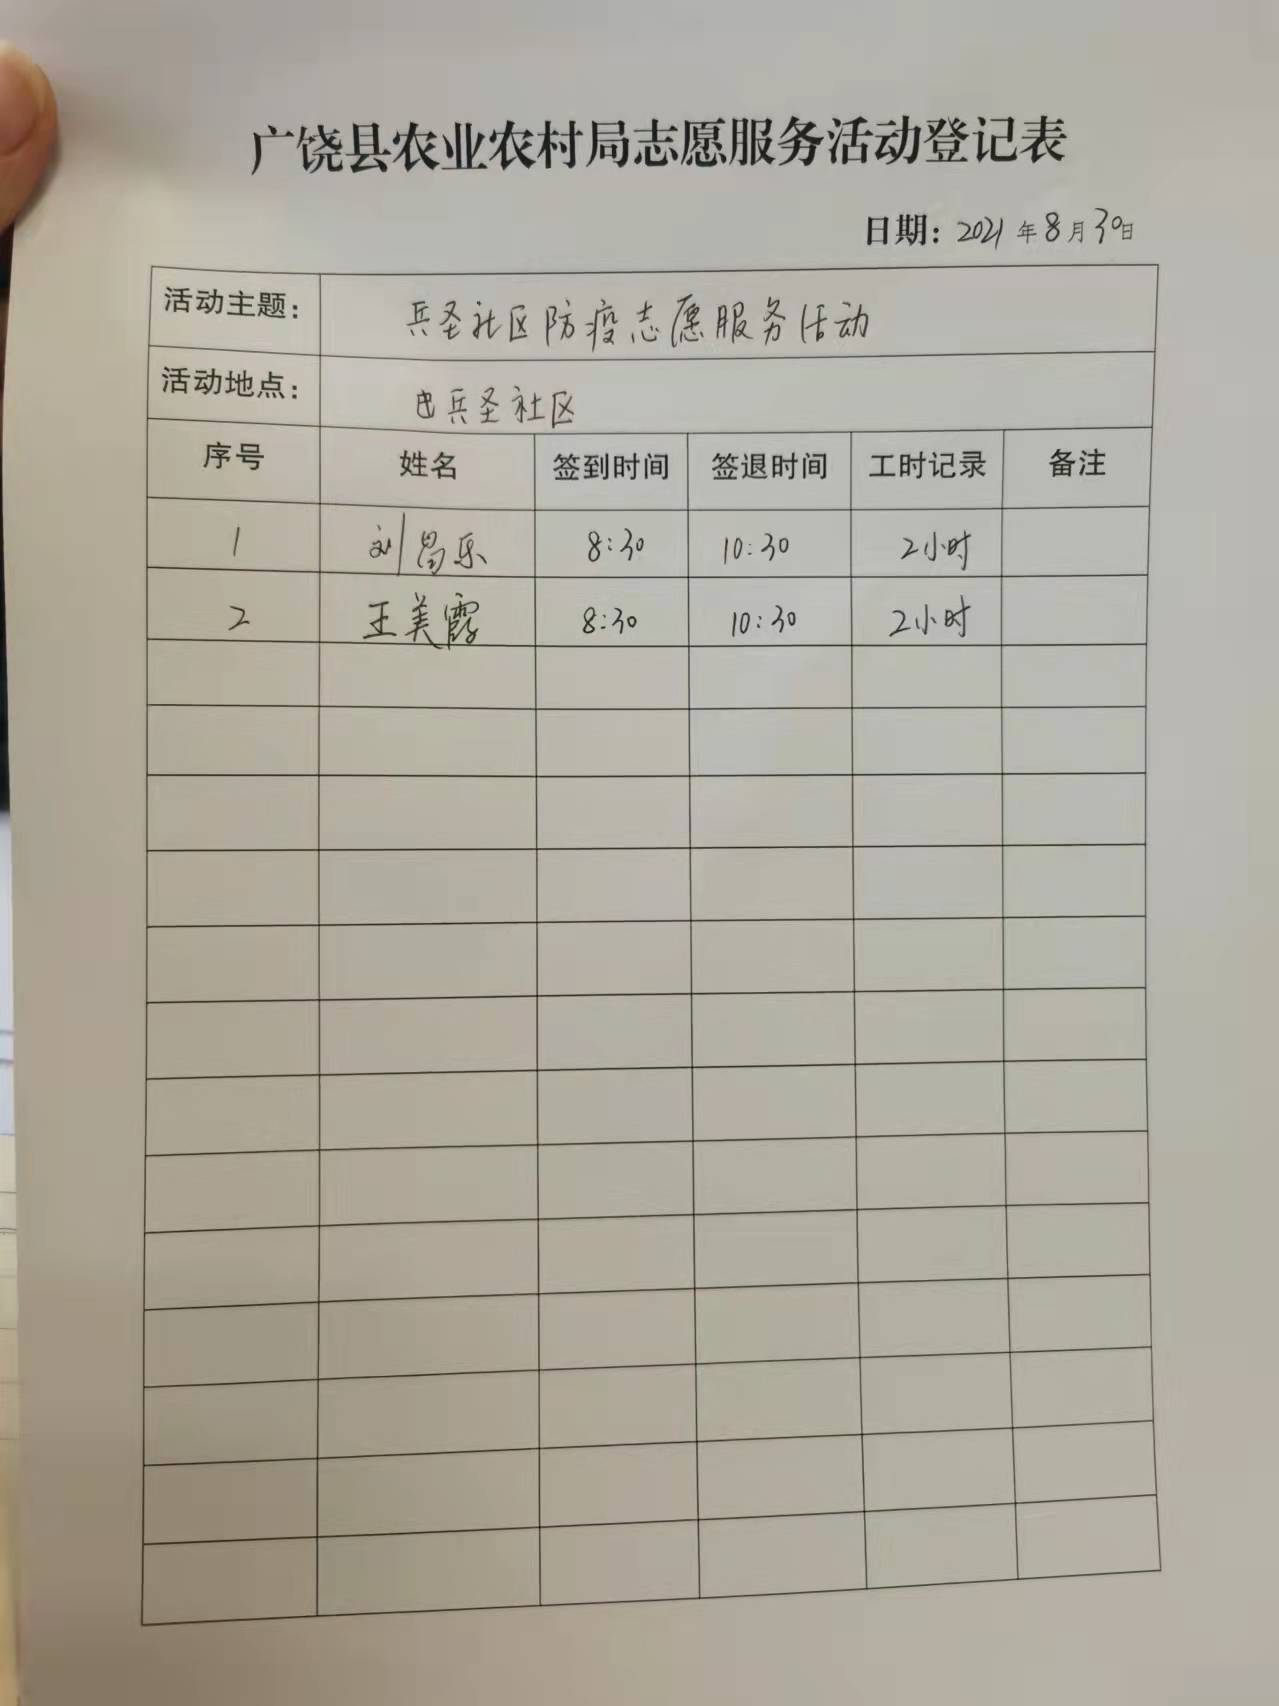 广饶县农业农村局志愿服务活动登记表
日期：2021年8月30日
活动主题： 兵圣社区防疫志愿服务活动
活动地点： 兵圣社区
序号 姓名 签到时间 签退时间 工时记录 备注
1 刘昌乐 8:30 10:30 2小时
2 王美霞 8:30 10:30 2小时